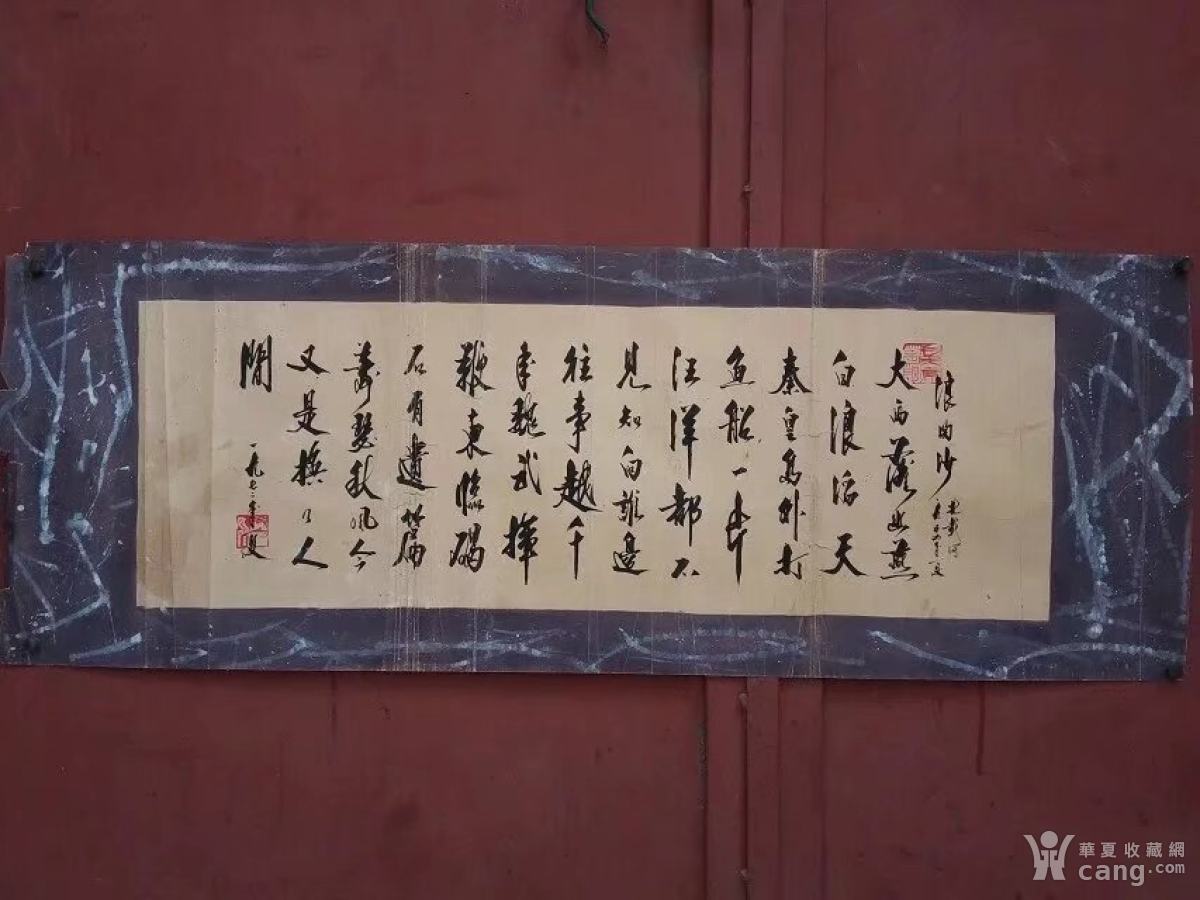 浪淘沙
北戴河
大雨落幽燕
白浪滔天
秦皇島外打
魚船一片
汪洋都不
見知向誰邊
往事越千
年魏武揮
鞭東臨碣
石有遺篇
蕭瑟秋風今
又是換了人
間
一九七二年夏
華夏收藏網
cang.com